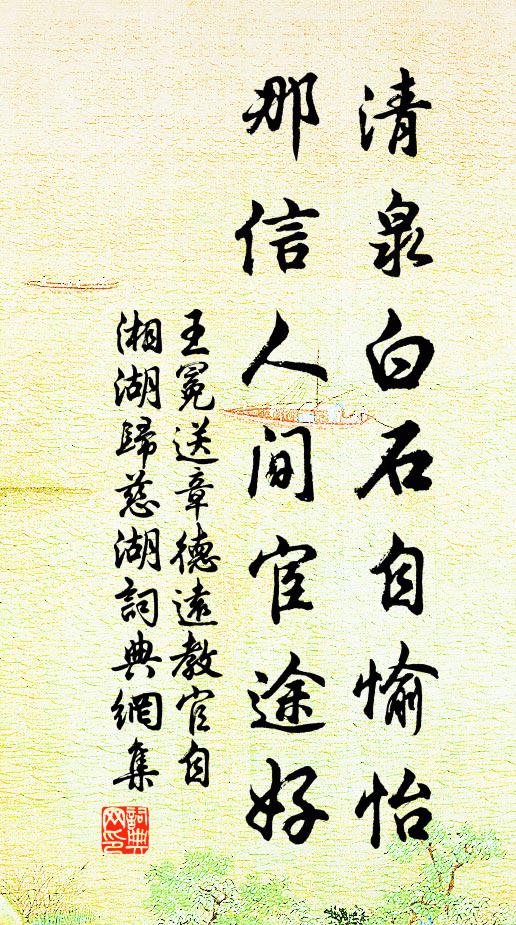 清泉白石自愉怡
那信人間宦途好
王冕送章德遠教官自
湘湖歸慈湖詞典網集
詞典
网印